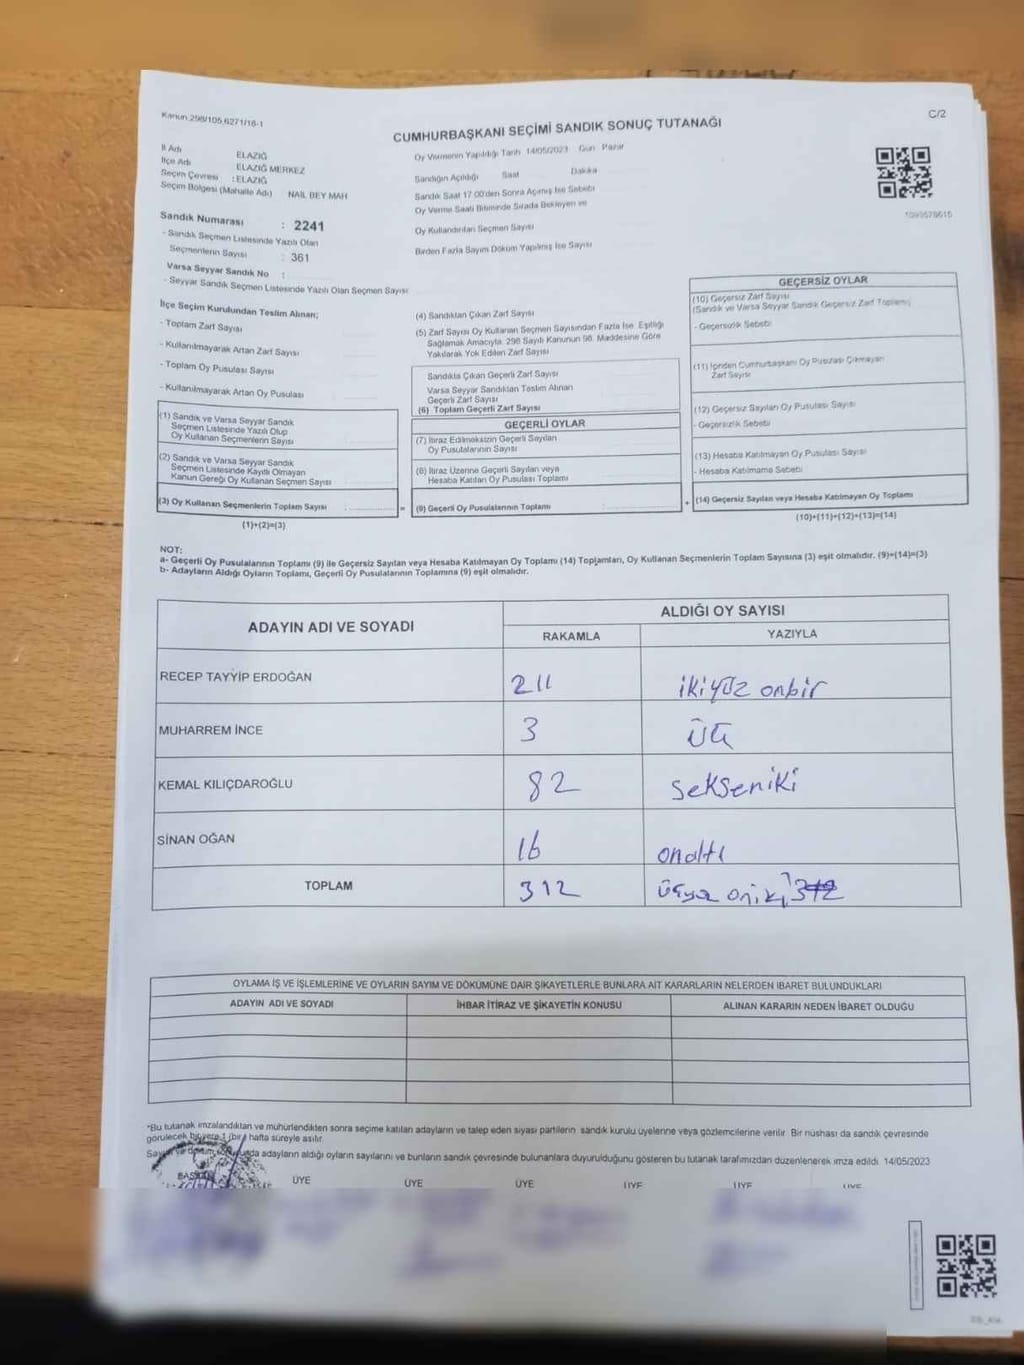 Kanun 298/105,6271/18-1
C/2
CUMHURBAŞKANI SEÇİMİ SANDIK SONUÇ TUTANAĞI
İl Adı ELAZIĞ
İlçe Adı ELAZIĞ MERKEZ
Seçim Çevresi : ELAZIĞ
Seçim Bölgesi (Mahalle Adı) NAİL BEY MAH
Sandık Numarası : 2241
- Sandık Seçmen Listesinde Yazılı Olan
Seçmenlerin Sayısı : 361
Varsa Seyyar Sandık No :
- Seyyar Sandık Seçmen Listesinde Yazılı Olan Seçmen Sayısı
Oy Vermenin Yapıldığı Tarih 14/05/2023 Gün Pazar
Sandığın Açıldığı Saat Dakika
Sandık Saat 17 00'den Sonra Açılmış İse Sebebi
Oy Verme Saati Bitiminde Sırada Bekleyen ve
Oy Kullandırılan Seçmen Sayısı
Birden Fazla Sayım Döküm Yapılmış İse Sayısı
İlçe Seçim Kurulundan Teslim Alınan;
- Toplam Zarf Sayısı
- Kullanılmayarak Artan Zarf Sayısı
- Toplam Oy Pusulası Sayısı
- Kullanılmayarak Artan Oy Pusulası
(1) Sandık ve Varsa Seyyar Sandık
Seçmen Listesinde Yazılı Olup
Oy Kullanan Seçmenlerin Sayısı
(2) Sandık ve Varsa Seyyar Sandık
Seçmen Listesinde Kayıtlı Olmayan
Kanun Gereği Oy Kullanan Seçmen Sayısı
(3) Oy Kullanan Seçmenlerin Toplam Sayısı
(1)+(2)=(3)
(4) Sandıktan Çıkan Zarf Sayısı
(5) Zarf Sayısı Oy Kullanan Seçmen Sayısından Fazla İse, Eşitliği
Sağlamak Amacıyla, 298 Sayılı Kanunun 98. Maddesine Göre
Yakılarak Yok Edilen Zarf Sayısı
Sandıkta Çıkan Geçerli Zarf Sayısı
Varsa Seyyar Sandıktan Teslim Alınan
Geçerli Zarf Sayısı
(6) Toplam Geçerli Zarf Sayısı
GEÇERLİ OYLAR
(7) İtiraz Edilmeksizin Geçerli Sayılan
Oy Pusulalarının Sayısı
(8) İtiraz Üzerine Geçerli Sayılan veya
Hesaba Katılan Oy Pusulası Toplamı
= (9) Geçerli Oy Pusulalarının Toplamı
GEÇERSİZ OYLAR
(10) Geçersiz Zarf Sayısı
(Sandık ve Varsa Seyyar Sandık Geçersiz Zarf Toplamı)
- Geçersizlik Sebebi
(11) İçinden Cumhurbaşkanı Oy Pusulası Çıkmayan
Zarf Sayısı
(12) Geçersiz Sayılan Oy Pusulası Sayısı
- Geçersizlik Sebebi
(13) Hesaba Katılmayan Oy Pusulası Sayısı
- Hesaba Katılmama Sebebi
+ (14) Geçersiz Sayılan veya Hesaba Katılmayan Oy Toplamı
(10)+(11)+(12)+(13)=(14)
NOT:
a- Geçerli Oy Pusulalarının Toplamı (9) ile Geçersiz Sayılan veya Hesaba Katılmayan Oy Toplamı (14) Toplamları, Oy Kullanan Seçmenlerin Toplam Sayısına (3) eşit olmalıdır. (9)+(14)=(3)
b- Adayların Aldığı Oyların Toplamı, Geçerli Oy Pusulalarının Toplamına (9) eşit olmalıdır.
ADAYIN ADI VE SOYADI ALDIĞI OY SAYISI
RAKAMLA YAZIYLA
RECEP TAYYİP ERDOĞAN 211 ikiyüz onbir
MUHARREM İNCE 3 üç
KEMAL KILIÇDAROĞLU 82 sekseniki
SİNAN OĞAN 16 onaltı
TOPLAM 312 üçyüz oniki 312
OYLAMA İŞ VE İŞLEMLERİNE VE OYLARIN SAYIM VE DÖKÜMÜNE DAİR ŞİKAYETLERLE BUNLARA AİT KARARLARIN NELERDEN İBARET BULUNDUKLARI
ADAYIN ADI VE SOYADI İHBAR İTİRAZ VE ŞİKAYETİN KONUSU ALINAN KARARIN NEDEN İBARET OLDUĞU
*Bu tutanak imzalandıktan ve mühürlendikten sonra seçime katılan adayların ve talep eden siyasi partilerin sandık kurulu üyelerine veya gözlemcilerine verilir. Bir nüshası da sandık çevresinde
görülecek bir yere 1 (bir) hafta süreyle asılır.
adayların aldığı oyların sayılarını ve bunların sandık çevresinde bulunanlara duyurulduğunu gösteren bu tutanak tarafımızdan düzenlenerek imza edildi. 14/05/2023
ÜYE ÜYE ÜYE ÜYE ÜYE ÜYE